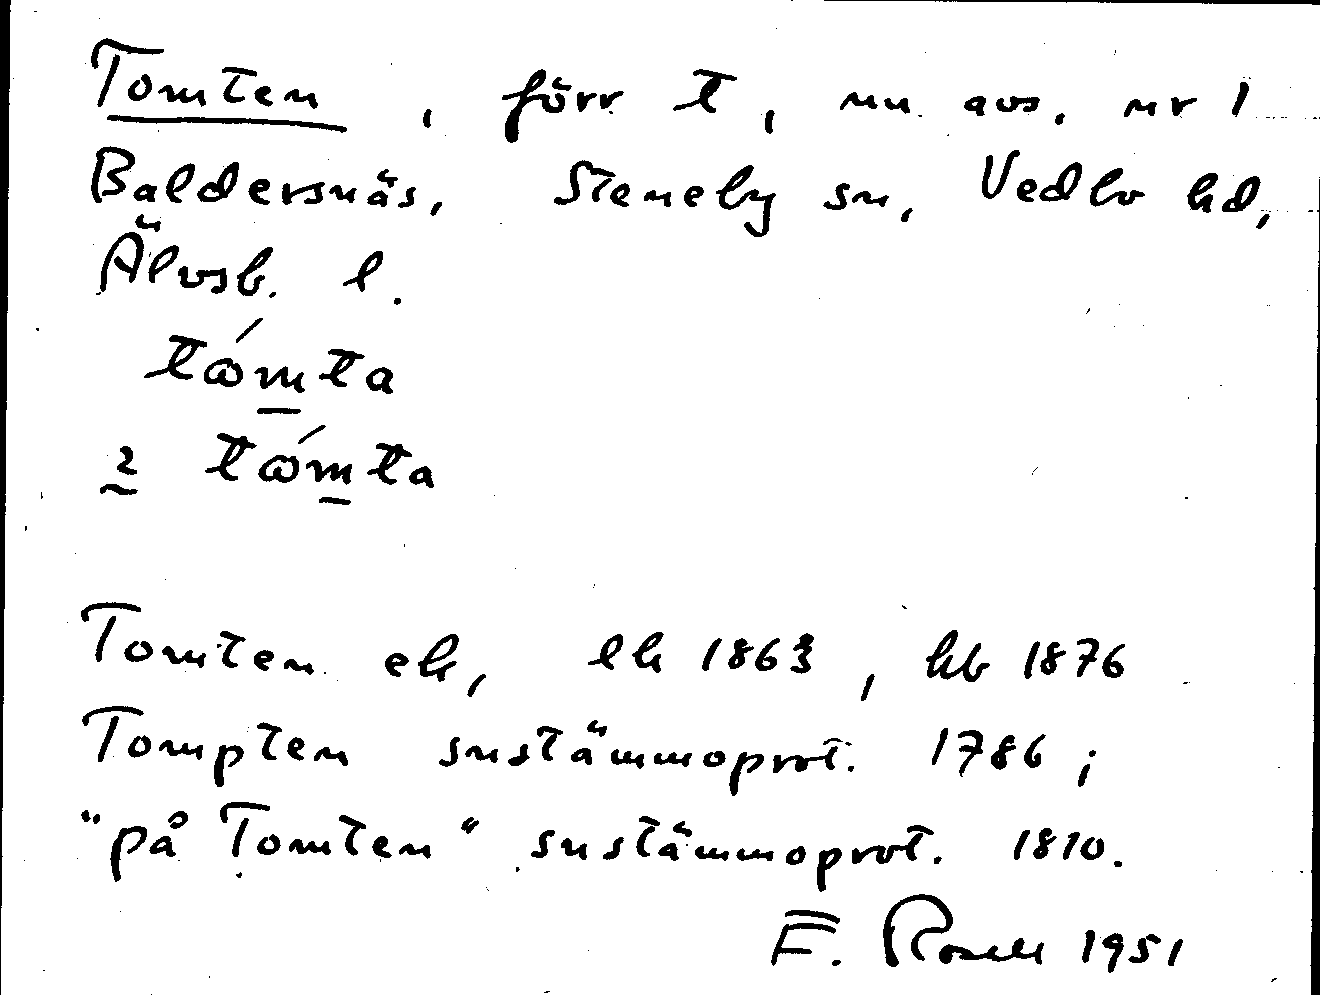 Tomten, förr t, nu avs. nr 1
Baldersnäs, Steneby sn, Vedbo hd,
Älvsb. l.
tómta
2 tómta
Tomten ek, lh 1863, hb 1876
Tompten snstämmoprot. 1786;
"på Tomten" snstämmoprot. 1810.
E. Rosell 1951